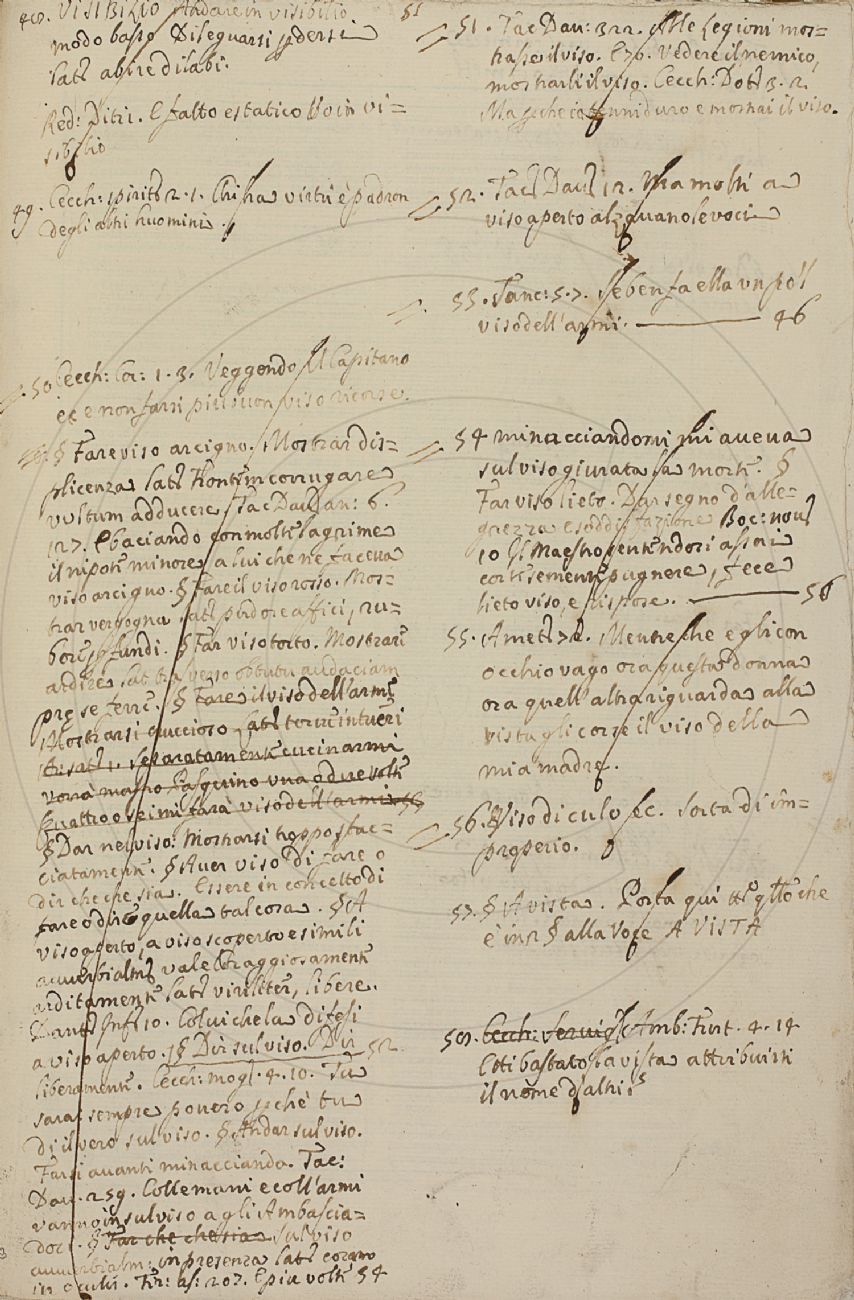 48. VISIBILIO Andare in visibilio
modo basso Dileguarsi perdersi
Lat. abire dilabi.
Red: Ditir. E salto estatico Vo in vi=
sibilio
49. Cecch: spirit. 2. 1. Chi ha virtù è padron
degli altri huomini.
50. Cecch: Cor: 1. 3. Veggendo il Capitano
ec e non farsi più buon viso ricorse.
§ Fare viso arcigno. Mostrar dis=
plicenza Lat. frontem corrugare
vultum adducere Tac Dav. an: 6.
127. E baciando con molte lagrime
il nipote minore, a lui che ne faceva
viso arcigno. § Fare il viso rosso. Mos=
trar vergogna Lat. pudore affici, ru=
bore suffundi. § Far viso torto. Mostrare
ardire Lat. traverso obtutu audaciam
pre se ferre. § Fare il viso dell'armi
Mostrarsi cruccioso Lat. torve intueri
separatamente cucinarmi
vorrà magro Pasquino una o due volte
quattro o sei mi farà viso dell'armi 53
§ Dar nel viso: Mostrarsi troppo sfac=
ciatamente. § Aver viso di fare o
dir che che sia. Essere in concetto di
fare o dire quella tal cosa. § A
viso aperto, a viso scoperto e simili
avverbialme. vale Coraggiosamente
arditamente Lat. viriliter, libere.
Dant. Inf. 10. Colui che la difesi
a viso aperto. § Dir sul viso. Dir 52
liberamente. Cecch: mogl. 4. 10. Tu
sarai sempre povero perchè tu
di il vero sul viso. § Andar sul viso.
Farsi avanti minacciando. Tac:
Dav. 259. Colle mani e coll'armi
vanno in sul viso agli Ambascia=
dori. § Far che che sia sul viso
avverbialm: in presenza Lat. coram
in oculis. Fir: as: 207. E più volte 54
51
51. Tac Dav: 322. Alle legioni mos=
trasse il viso. E 70. Vedere il nemico,
mostrarli il viso. Cecch: Dot. 3. 2.
Ma perche io tenni duro e mostrai il viso.
52. Tac. Dav. 12. Ma molti a
viso aperto alzavano le voci
53. Tanc: 5. 7. Se ben fa ella un po'l
viso dell'armi. 46
54 minacciandomi mi aveva
sul viso giurata la morte. §
Far viso lieto. Dar segno d'alle=
grezza e soddisfazione Boc: nov.
10 Il Maestro sentendosi assai
cortesemente pugnere, fece
lieto viso, e rispose. 56
55. Amet. 72. Mentre che egli con
occhio vago ora questa donna
ora quell'altra riguarda alla
vista gli corse il viso della
mia madre.
56. § Viso di culo ec. Sorta di im=
properio.
57. § A vista. Porta qui tt.o q.llo che
è in § alla Voce A VISTA
58. Cecch: servig. Amb: Furt. 4. 14
E ti bastato la vista attribuirti
il nome d'altri?